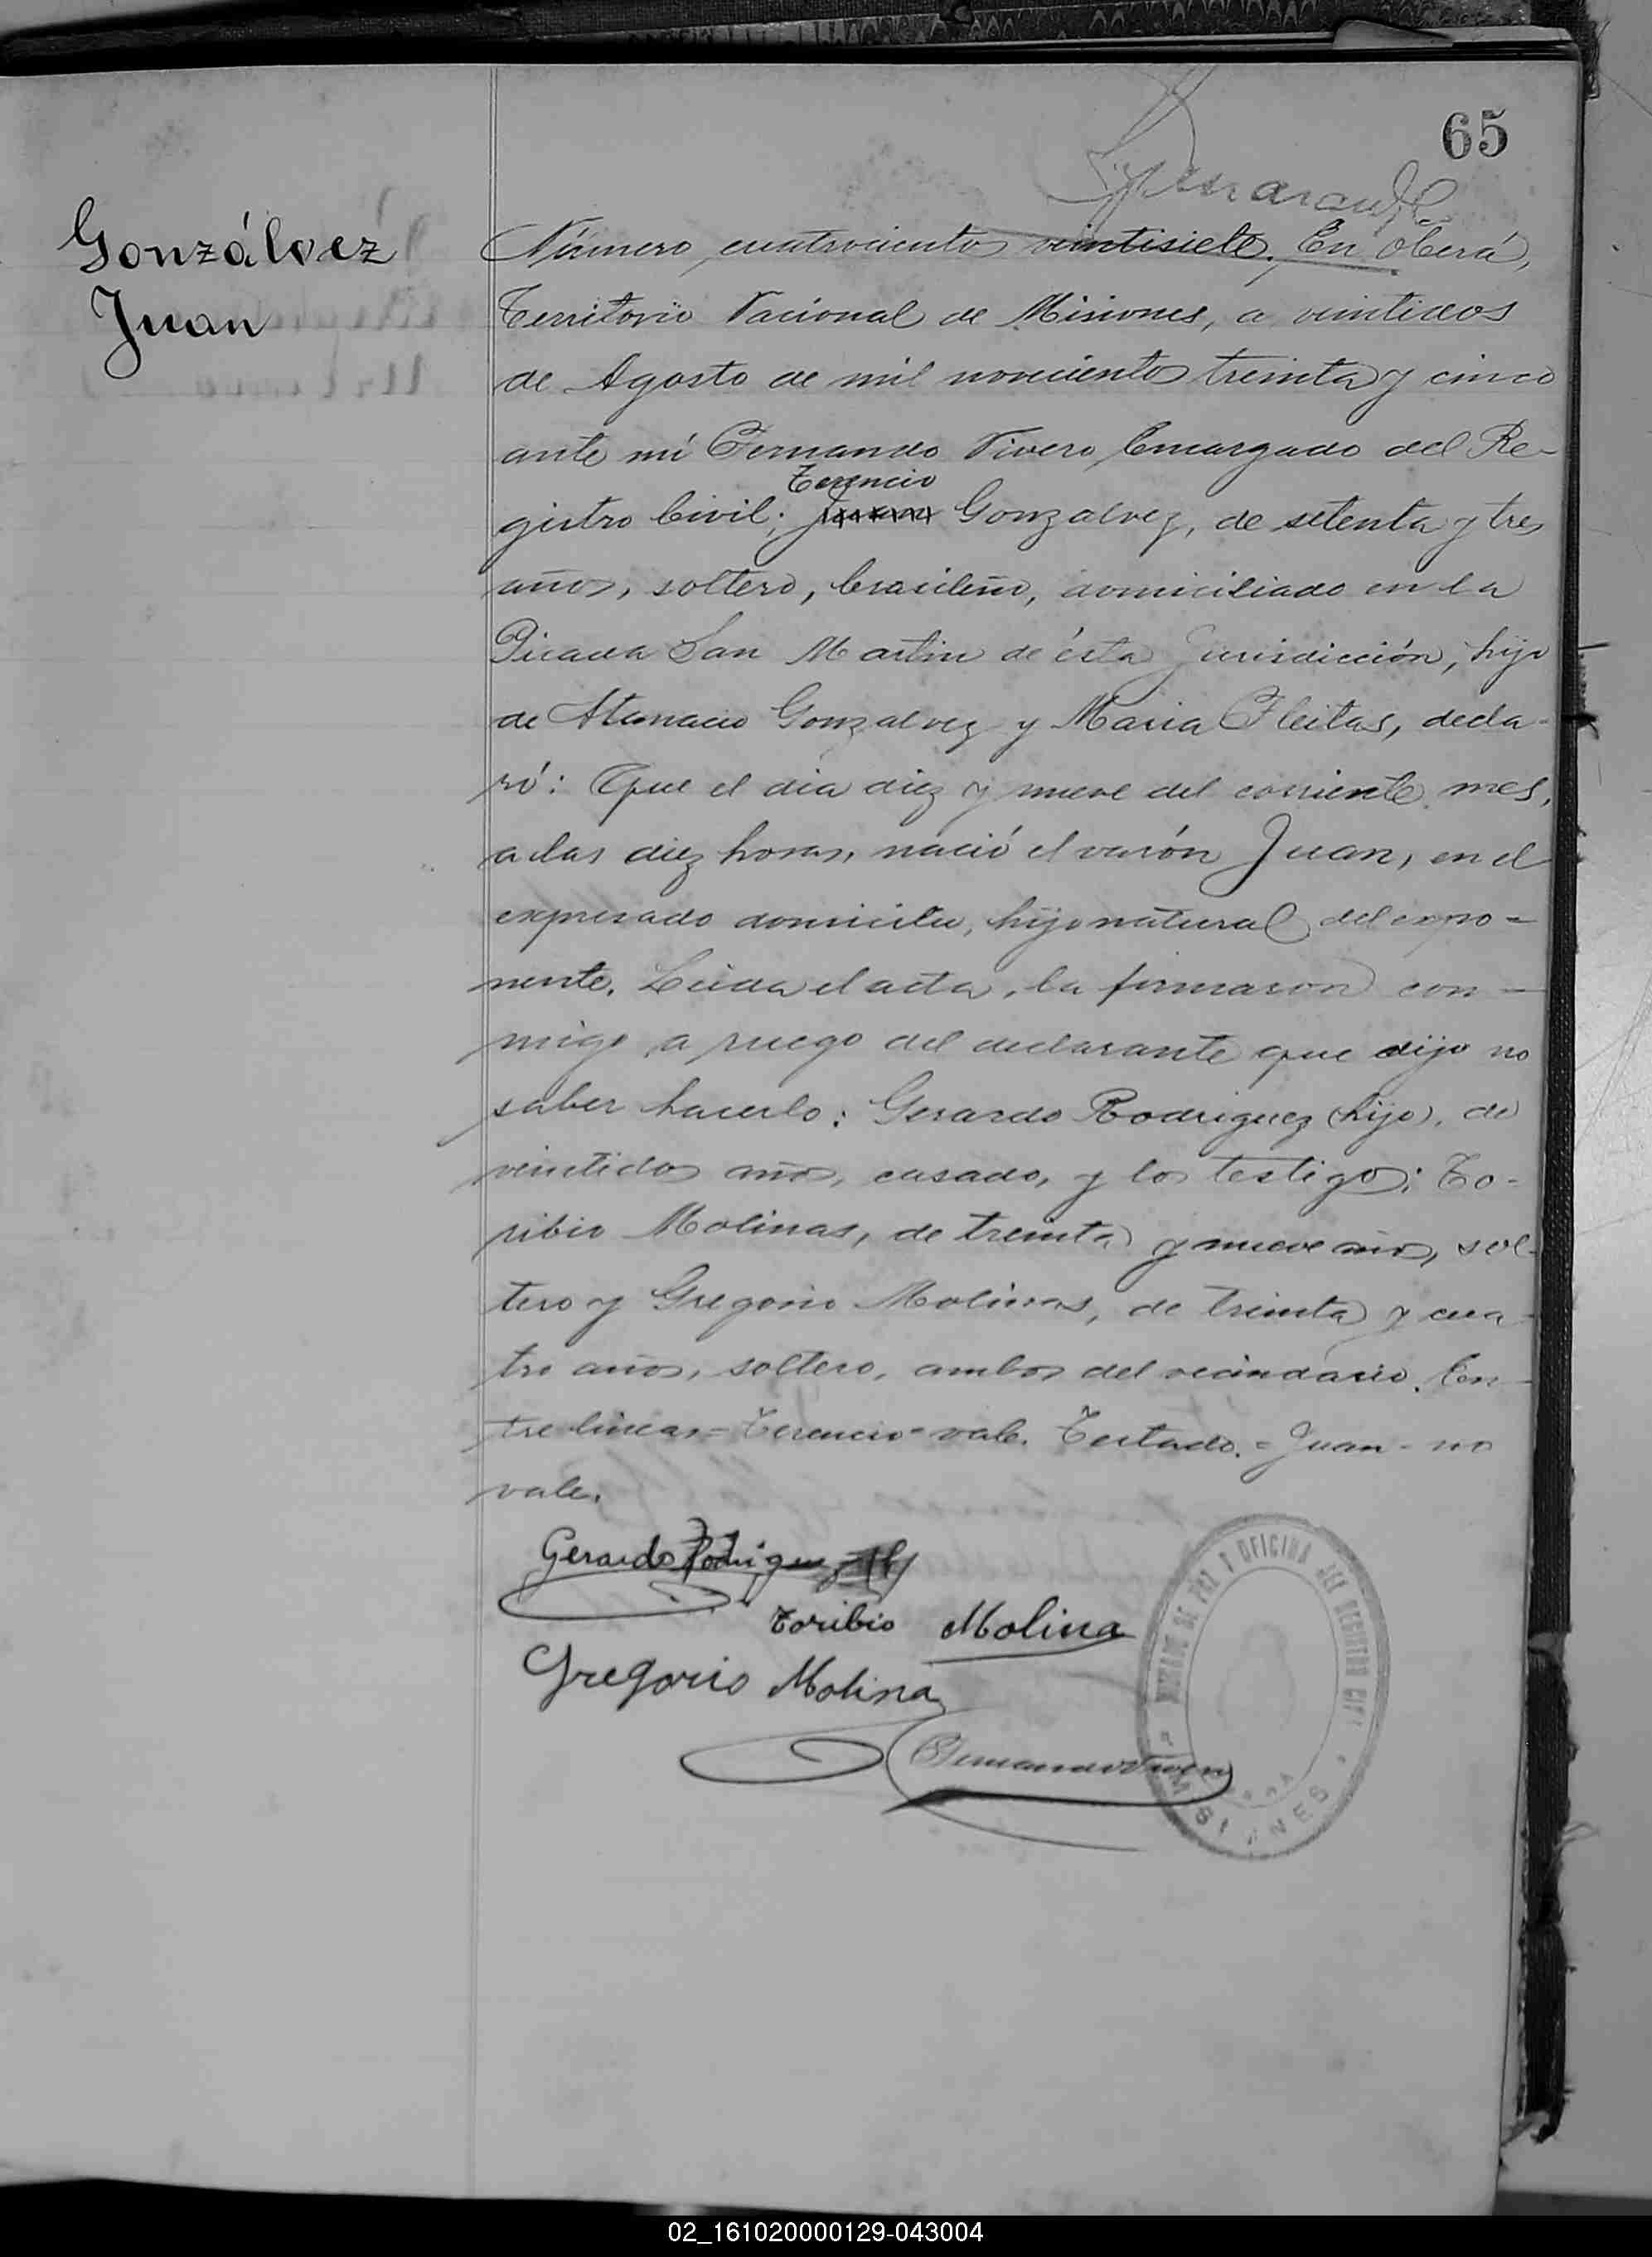 65
Gonzálvez
Juan
Número cuatrocientos veintisiete. En Oberá,
Territorio Nacional de Misiones, a veintidos
de Agosto de mil novecientos treinta y cinco
ante mí Fernando Vivero Encargado del Re-
Terencio
gistro Civil; Juan Gonzalvez, de setenta y tres
años, soltero, brasileño, domiciliado en la
Picada San Martin de ésta Jurisdicción, hijo
de Atanacio Gonzalvez y Maria Fleitas, decla-
ró: Que el día diez y nueve del corriente mes,
a las diez horas, nació el varón Juan, en el
expresado domicilio, hijo natural del expo-
nente. Leída el acta, la firmaron con-
migo, a ruego del declarante que dijo no
saber hacerlo: Gerardo Rodriguez (hijo), de
veintidos años, casado, y los testigos: To-
ribio Molinas, de treinta y nueve años, sol-
tero y Gregorio Molinas, de treinta y cua-
tro años, soltero, ambos del vecindario. En-
tre lineas = Terencio = vale. Testado. = Juan - no
vale.
Gerardo Rodriguez (h)
Toribio Molina
Gregorio Molina
Fernando Vivero
JUZGADO DE PAZ Y OFICINA DEL REGISTRO CIVIL
MISIONES
02_161020000129-043004